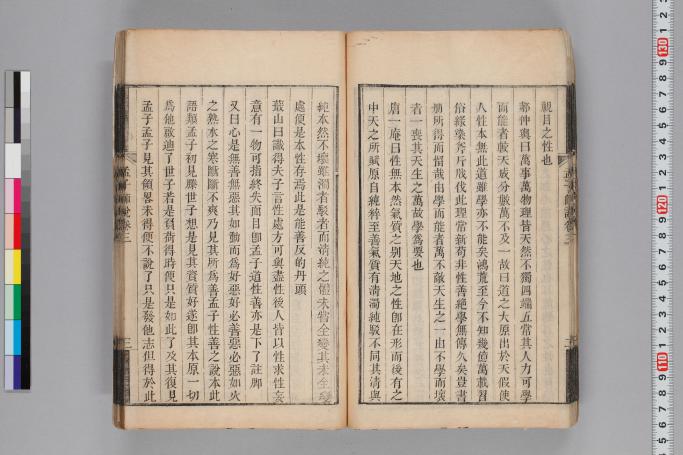 親目之性也
鄒仲輿曰萬事萬物理皆天然不獨四端五常其人力可學
而能者較天成分數萬不及一故曰道之大原出於天假使
人性本無此道雖學亦不能矣鴻荒至今不知幾億萬載習
俗緣染斧斤戕伐此理常新苟非性善絕學無傳久矣豈書
冊所得而留哉由學而能者萬不敵天生之一由不學而壞
者一喪其天生之萬故學為要也
唐一庵曰性無本然氣質之別天地之性卽在形而後有之
中天之所賦原自純粹至善氣質有淸濁純駁不同其淸與
純本然不壞雖濁者駁者而淸純之體未嘗全變其未全變
處便是本性存焉此是能善反的丹頭
蕺山曰識得夫子言性處方可與盡性後人皆以性求性妄
意有一物可指終失面目卽孟子道性善亦是下了註脚
又曰心是無善無惡其如動而為好惡好必善惡必惡如火
之熱水之寒斷斷不爽乃見其所為善孟子性善之說本此
語類孟子初見滕世子想是見其資質好遂卽其本原一切
為他啟迪了世子若是負荷得時便只是如此了及其復見
孟子孟子見其領畧未得便不說了只是發他志但得於此
孟子師說卷三
孟子師說卷三
130
120
110